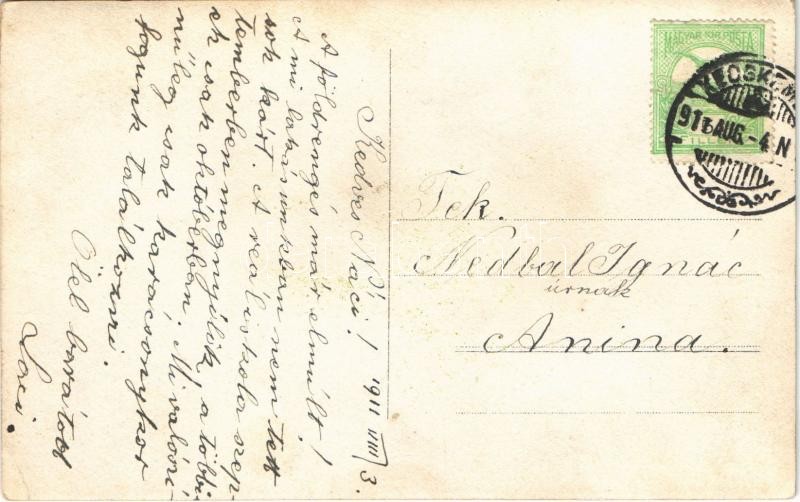 Kedves Náci! 1911 VIII/3.
A földrengés már elmúlt!
A mi lakasunkban nem tett
sok kárt. A realiskola szep-
temberben megnyílik, a többi-
ek csak oktoberban. Mi valószi-
nűleg csak karácsonykor
fogunk találkozni.
Ölel barátod
Laci.
MAGYAR KIR. POSTA
KECSKEM
911 AUG.-4.N
Tek.
Nedbal Ignác
úrnak
Anina.